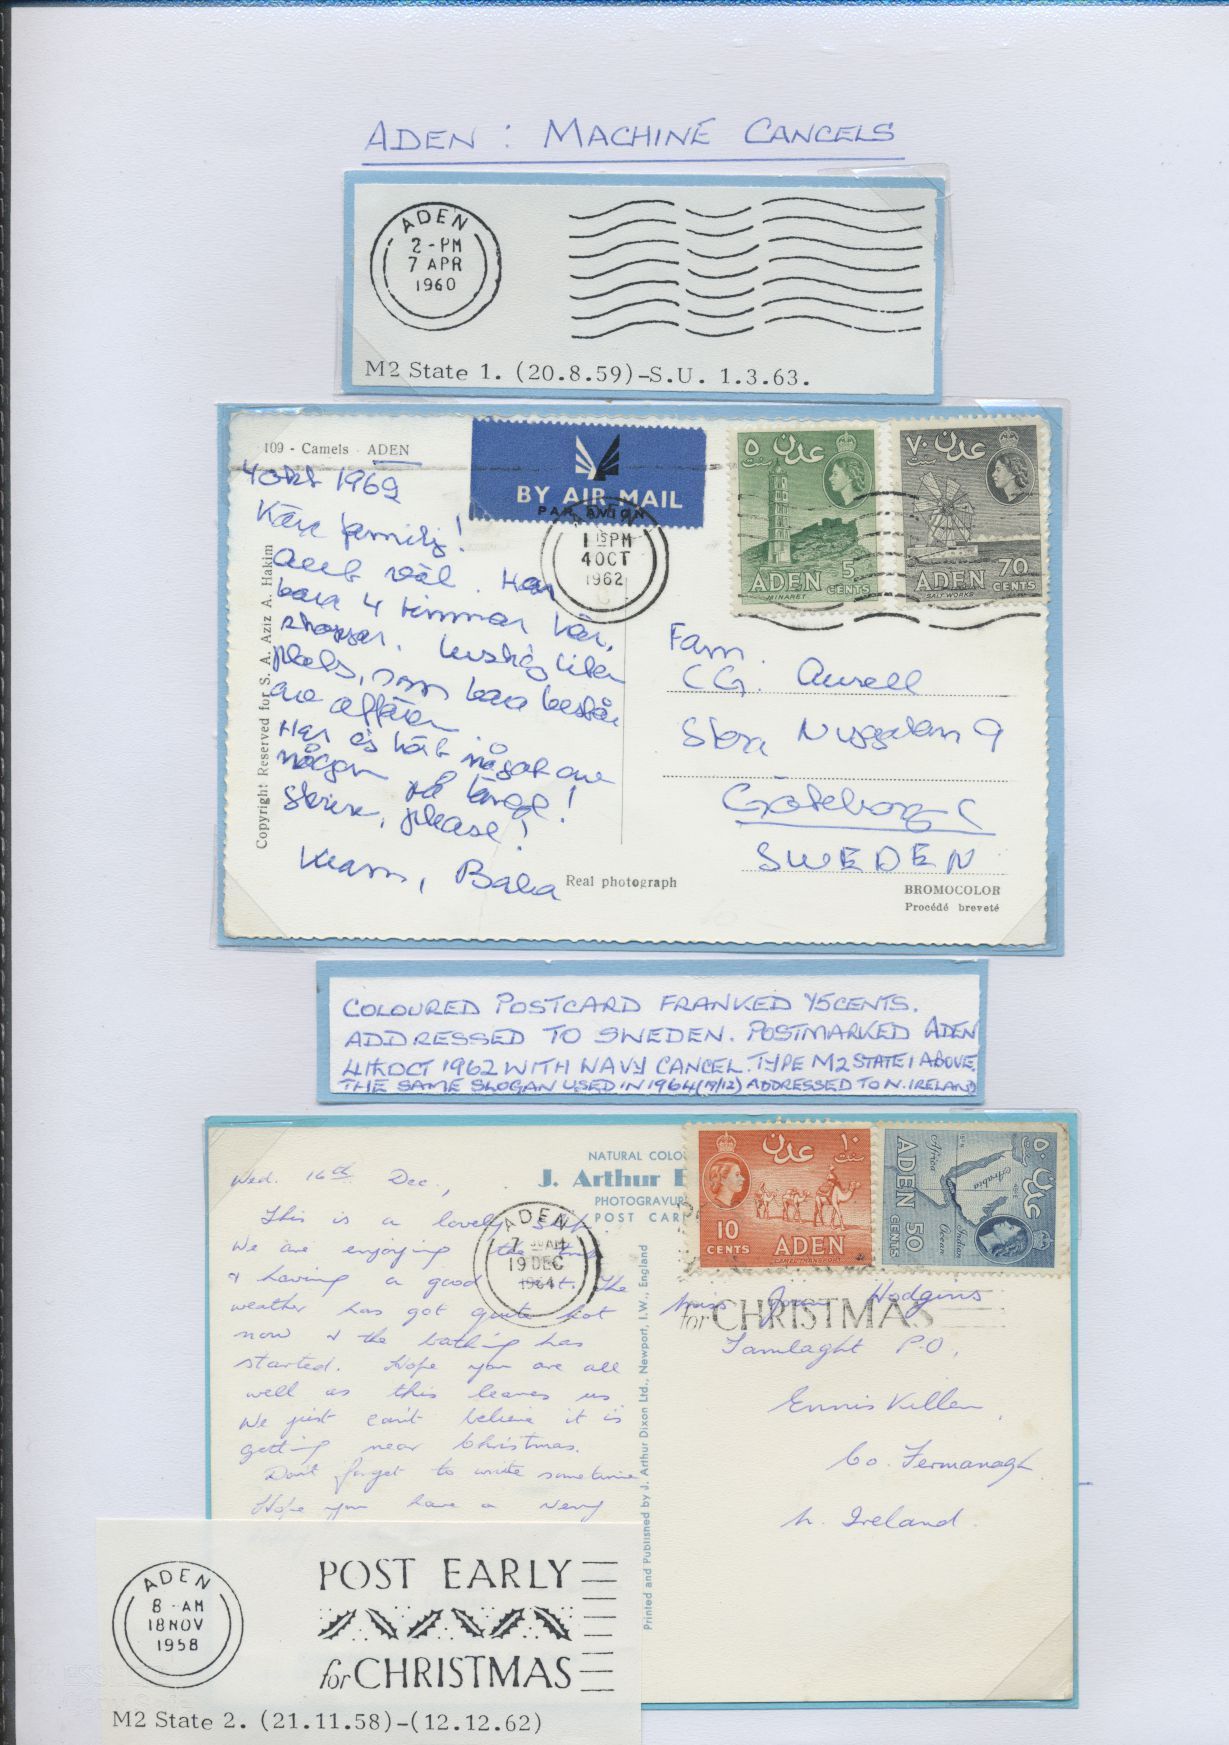 ADEN : MACHINE CANCELS
ADEN
2 - PM
7 APR
1960
M2 State 1. (20.8.59)-S.U. 1.3.63.
109 - Camels ADEN
BY AIR MAIL
PAR AVION
ADEN
1 15 PM
4 OCT
1962
٥ عدن
سنت
ADEN 5
CENTS
MINARET
٧٠ عدن
سنت
ADEN 70
CENTS
SALT WORKS
4 okt 1962
Kära familj!
Allt väl. Har
bara 4 timmar här,
shoppar. Lustig liten
plats, som bara består
av affärer.
Har ej hört något av
någon på länge!
Skriv, please!
Kram, Baba
Copyright Reserved for S. A. Aziz A. Hakim
Fam.
CG. Aurell
Stora Nygatan 9
Göteborg C
SWEDEN
Real photograph
BROMOCOLOR
Procédé breveté
COLOURED POSTCARD FRANKED 75CENTS.
ADDRESSED TO SWEDEN. POSTMARKED ADEN
4th OCT 1962 WITH WAVY CANCEL. TYPE M2 STATE 1 ABOVE.
THE SAME SLOGAN USED IN 1964 (19/12) ADDRESSED TO N. IRELAND
NATURAL COLO
J. Arthur
PHOTOGRAVUR
POST CAR
ADEN
7 30AM
19 DEC
1964
١٠ عدن
سنت
10
CENTS
ADEN
CAMEL TRANSPORT
٥٠ عدن
سنت
ADEN 50
CENTS
Africa
Arabia
Indian
Ocean
for CHRISTMAS
Wed. 16th Dec.,
This is a lovely
We are enjoying the
& having a good The
weather has got quite hot
now & the bathing has
started. Hope you are all
well as this leaves us
We just can't believe it is
getting near Christmas.
Don't forget to write sometime
Hope you have a very
Printed and Published by J. Arthur Dixon Ltd., Newport, I.W., England
Miss Joan Hodgins
Tamlaght P.O.,
Enniskillen,
Co. Fermanagh
N. Ireland.
ADEN
8 - AM
18 NOV
1958
POST EARLY
for CHRISTMAS
M2 State 2. (21.11.58)-(12.12.62)